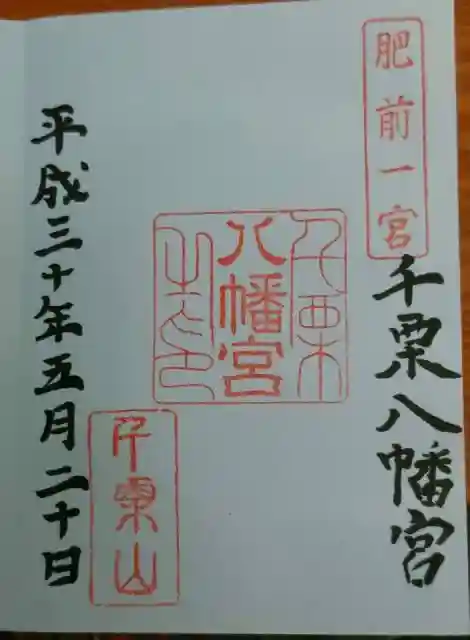 肥前一宮
千栗八幡宮
千栗
八幡宮
之印
千栗山
平成三十年五月二十日